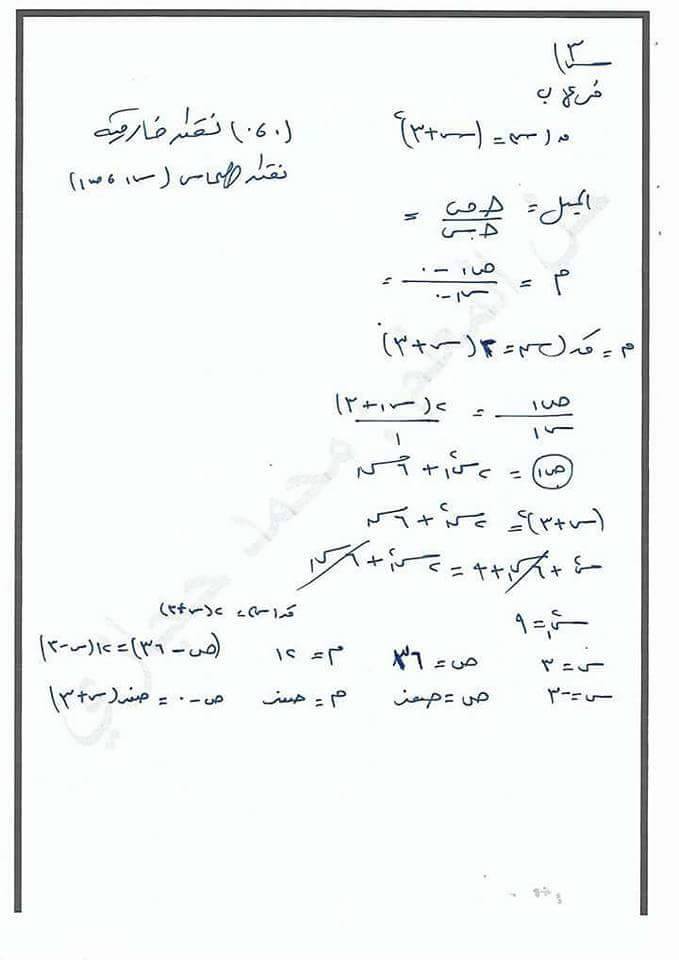 س٣)
فرع ب
ق(س) = (س+٣)² (٠،٠) نقطة خارجية
نقطة التماس (س١، ص١)
الميل = Δص/Δس =
م = ص١ − ٠ / س١ − ٠ =
م = قَ(س) = ٢(س+٣)
ص١/س١ = ٢(س١+٣)/١
ص١ = ٢س١² + ٦س١
(س+٣)² = ٢س١² + ٦س١
س² + ٦س١ + ٩ = ٢س١² + ٦س١
قَ(س) = ٢(س+٣)
س² = ٩
س = ٣ ص = ٣٦ م = ١٢ (ص − ٣٦) = ١٢(س − ٣)
س = −٣ ص = صفر م = صفر ص − ٠ = صفر(س+٣)